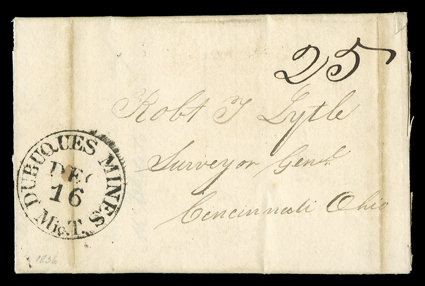 25
Robt T Lytle
Surveyor Genl.
Cincinnati Ohio
DUBUQUES MINES
DEC
16
Mic.T.
1836